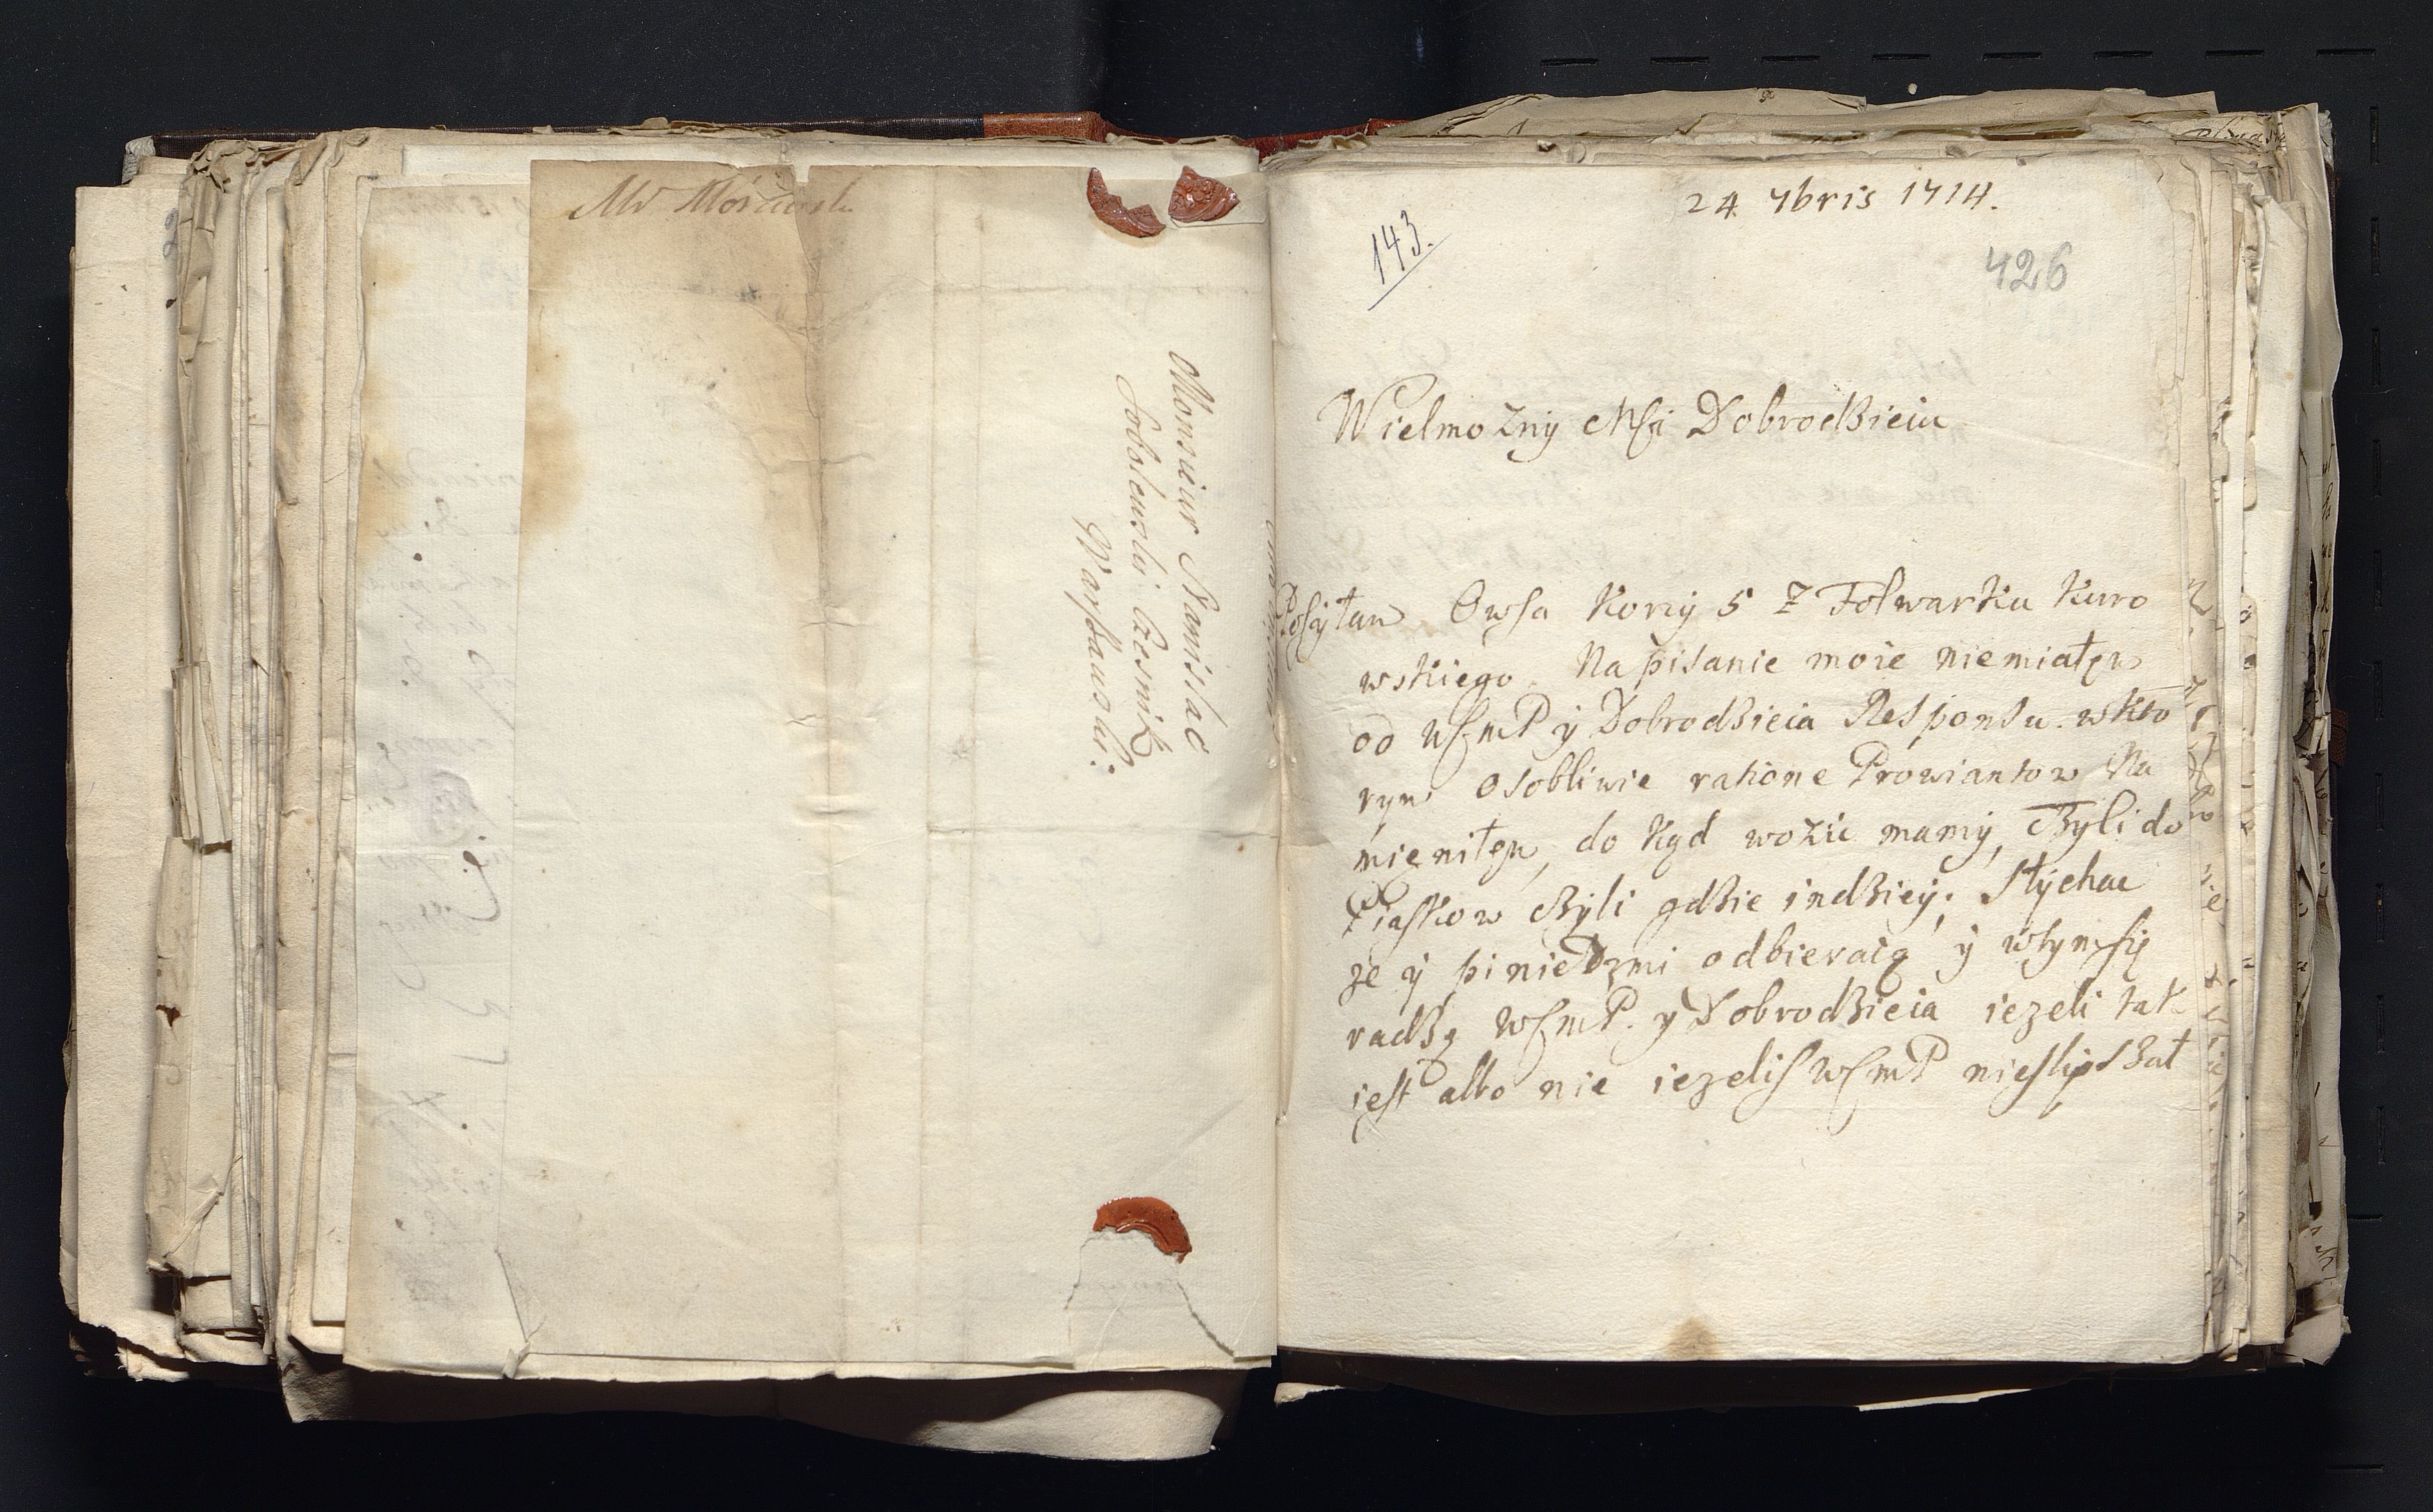 Monsieur Stanislac
Sobolewski Czesnik
Warszawski:
24 7bris 1714.
143.
426
Wielmozny Msci Dobrodzieiu
Posyłam Owsa Korcy 5 Z Folwarku Kuro
wskiego. Na pisanie moie niemiałęm
od WSmP y Dobrodzieia Responsu. w kto
rym osobliwie ratione Prowiantow Na
mięniłęm, do kąd wozic mamy, Byli do
Piaskow Byli gdzie indziey; Słychac
ze y piniedzmi odbieraią y wtym się
radzę WSmP. y Dobrodzieia iezeli tak
iest albo nie iezelis WSmP niesłyszał